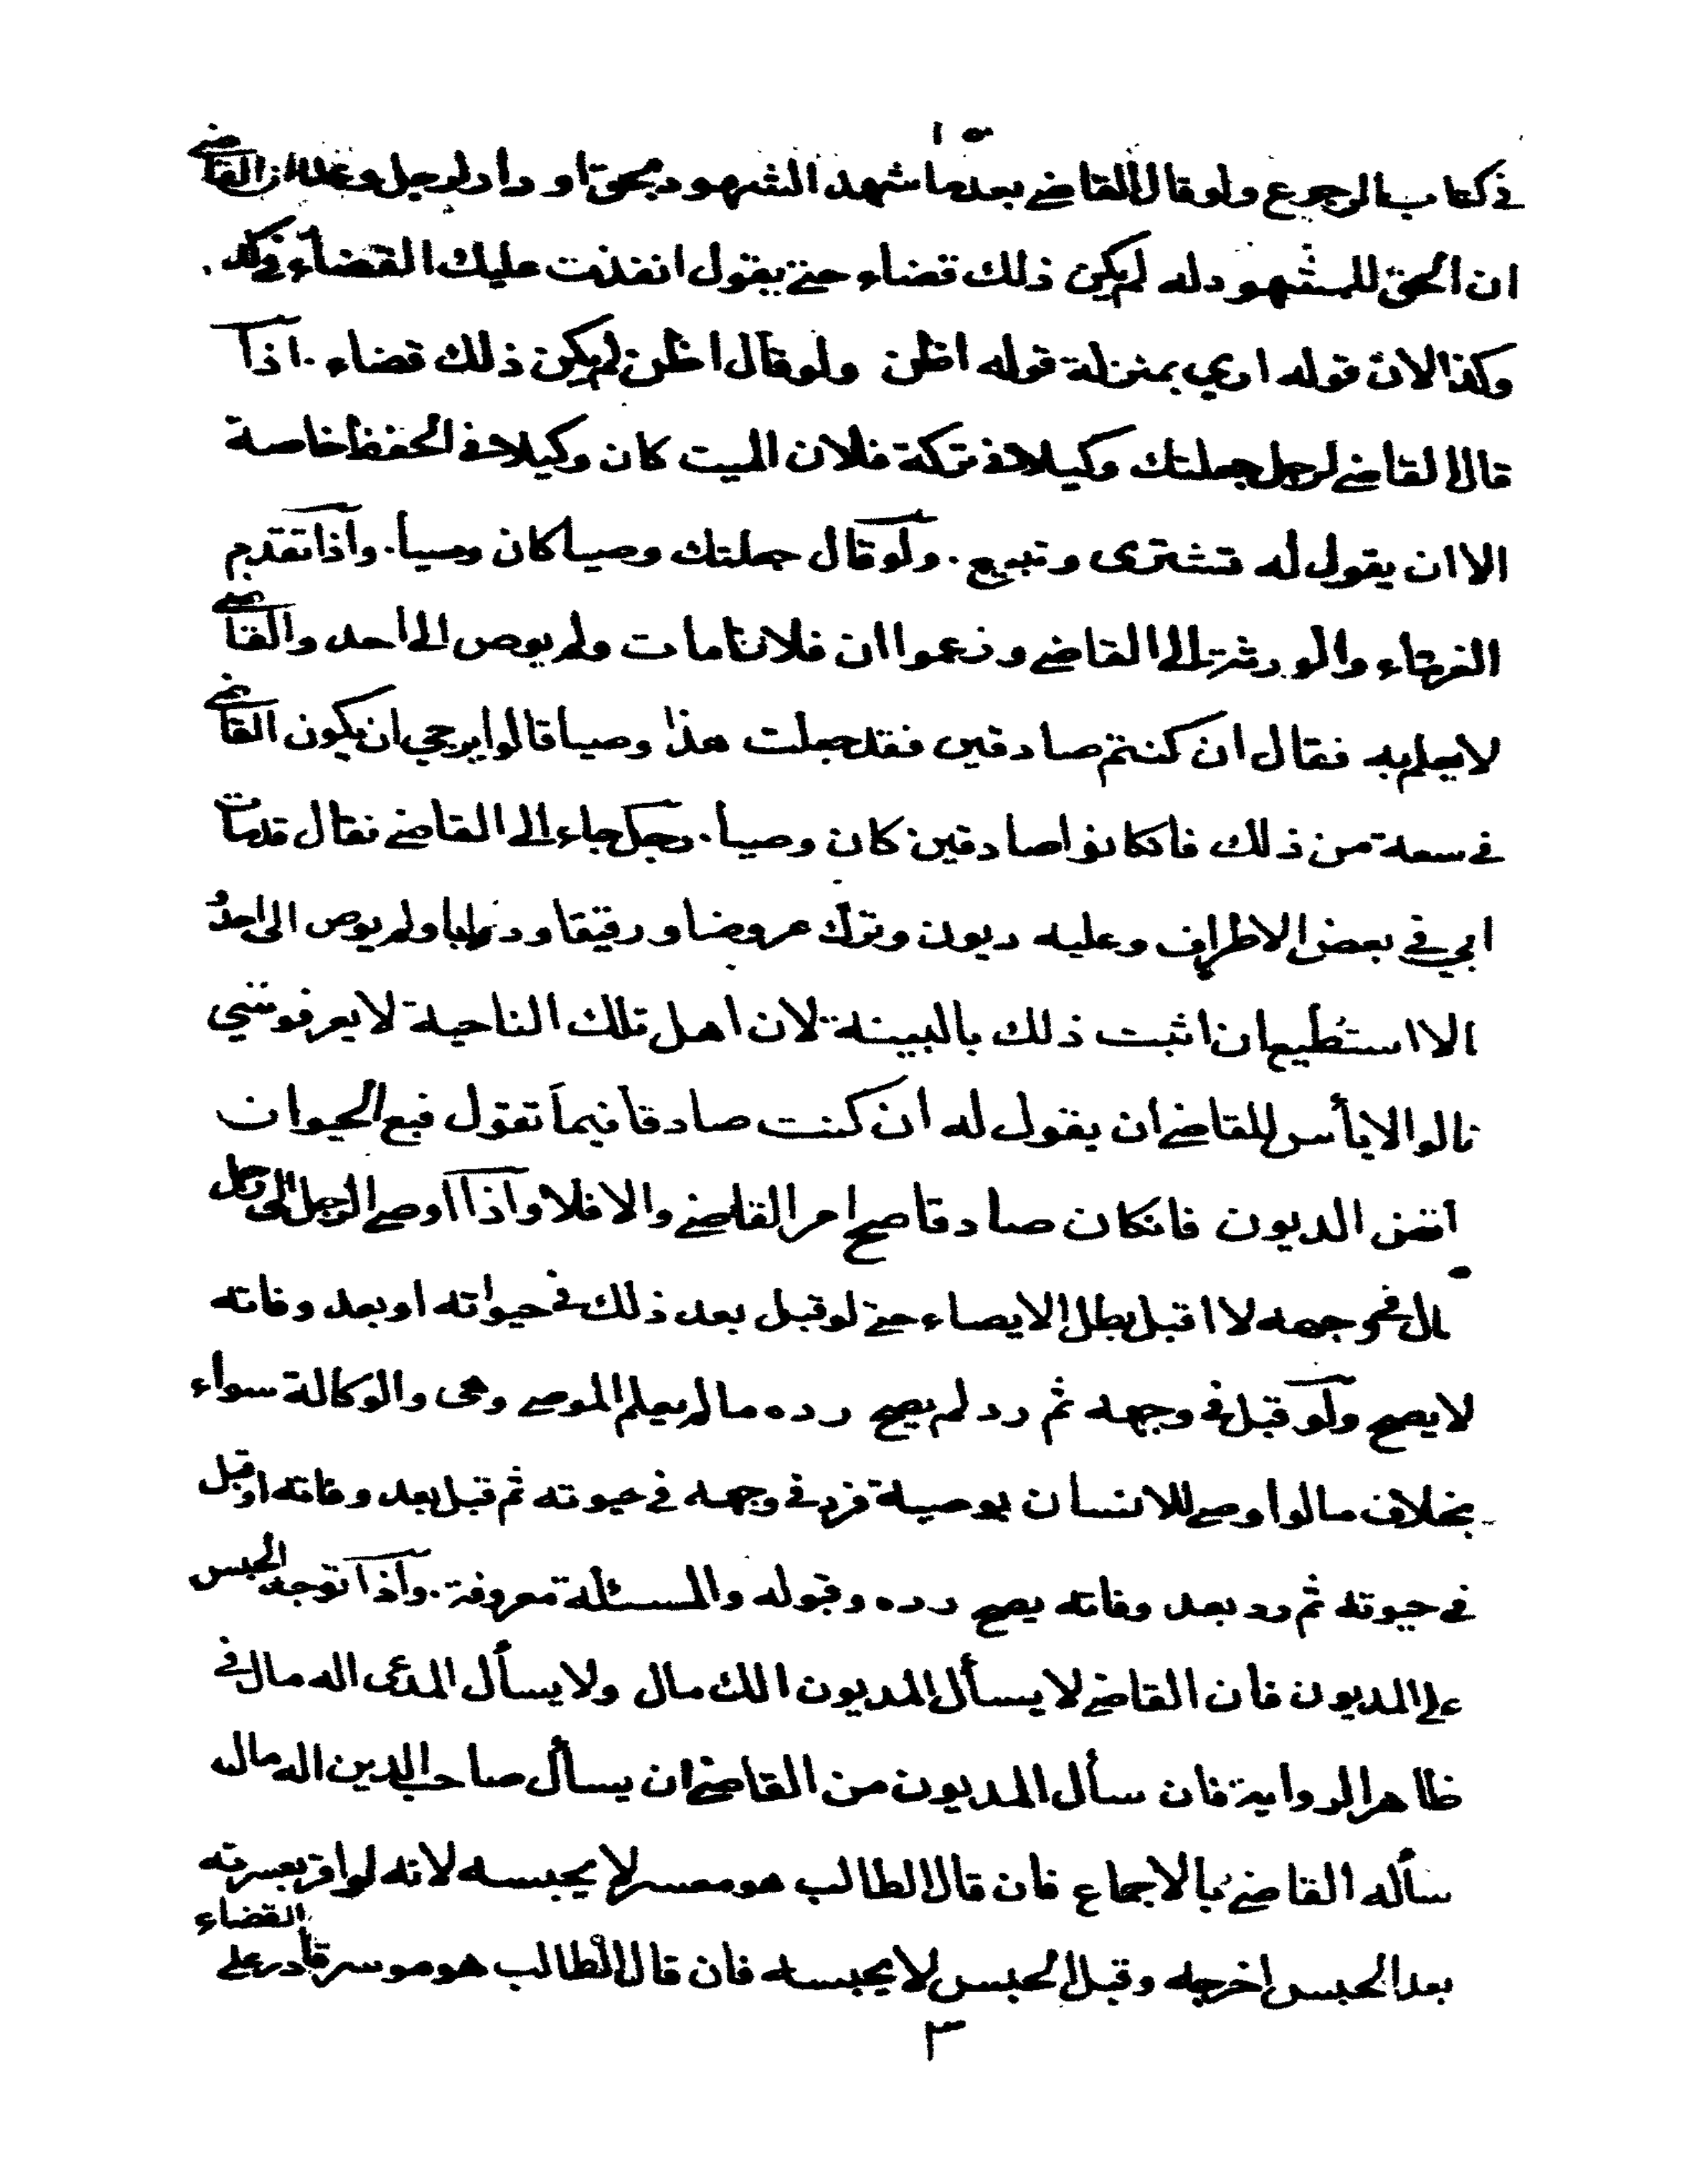 في كتاب الرجوع ولو قال القاضي بعدما شهد الشهود بحق او دار لرجل القاضي
ان الحق للمشهود له لم يكن ذلك قضاء حتى يقول انفذت عليك القضاء
وكذا لان قوله اري بمنزلة قوله اظن ولو قال اظن لم يكن ذلك قضاء . اذا
قال القاضي لرجل جعلتك وكيلا في تركة فلان الميت كان وكيلا في الحفظ خاصة
الا ان يقول له تشترى وتبيع . ولو قال جعلتك وصيا كان وصيا . واذا تقدم
الغرماء والورثة الى القاضي وزعموا ان فلانا مات ولم يوص الى احد والقاضي
لا يعلم به فقال ان كنتم صادقين فقد جعلت هذا وصيا قالوا يرجى ان يكون القاضي
في سعة من ذلك فان كانوا صادقين كان وصيا . رجل جاء الى القاضي فقال قد مات
ابي في بعض الاطراف وعليه ديون وترك عروضا ورقيقا ودوابا ولم يوص الى احد
الا استطيع ان اثبت ذلك بالبينة لان اهل تلك الناحية لا يعرفوننى
قالوا لا بأس للقاضي ان يقول له ان كنت صادقا فيما تقول فبع الحيوان
اقض الديون فان كان صادقا صح امر القاضي والا فلا واذا اوصى الرجل الى رجل
قال في وجهه لا اقبل بطل الايصاء حتى لو قبل بعد ذلك في حيواته او بعد وفاته
لا يصح ولو قبل في وجهه ثم رد لم يصح رده ما لم يعلم الموصى وهى والوكالة سواء
بخلاف ما لو اوصى للانسان بوصية فرد في وجهه في حيوته ثم قبل بعد وفاته او قبل
في حيوته ثم رد بعد وفاته يصح رده وقبوله والمسئلة معروفة . واذا توجه الحبس
على المديون فان القاضي لا يسأل المديون الك مال ولا يسأل المدعى اله مال في
ظاهر الرواية فان سأل المديون من القاضي ان يسأل صاحب الدين اله مال
سأله القاضي بالاجماع فان قال الطالب هو معسر لا يحبسه لانه لو اقر بعسرته
بعد الحبس اخرجه وقبل الحبس لا يحبسه فان قال الطالب هو موسر قادر على القضاء
٣